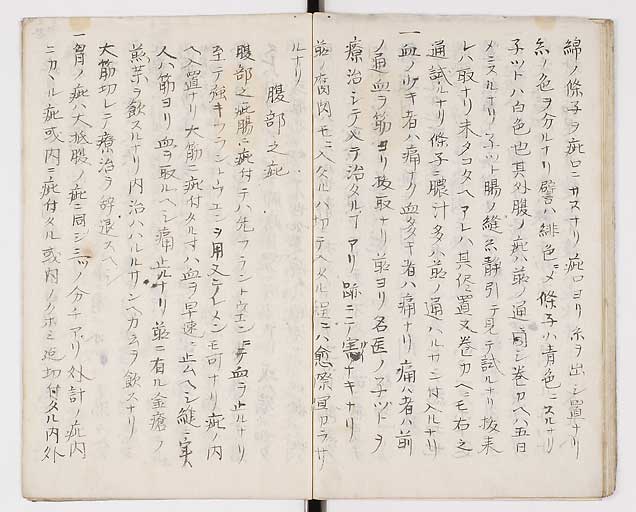 綿ノ條子ヲ疵口ニサスナリ疵口ヨリ糸ヲ出シ置ナリ
糸ノ色ヲ分ルナリ譬ハ緋色ニメ條子ハ青色ニスルナリ
子ツトハ白色也其外腹ノ疵ハ前ノ通同シ巻カヘハ五日
メニスルナリ子ツト腸ノ縫糸静引テ見テ試ルナリ抜来
レハ取ナリ未タコタヘアレハ其侭置又巻カヘニモ右之
通試ルナリ條子ニ膿汁多ハ前ノ通ハルサン付入ルナリ
一血ノ少キ者ハ痛ナリ血多キ者ハ痛ナリ痛者ハ前
ノ通血ヲ筋ヨリ抜取ナリ前ヨリ名医ノ子ツトヲ
療治シテ入テ治タル アリ跡ニテ害ナキナリ
前腐肉モ入タルハ切テヘタル ニハ愈 宜カラサ
ルナリ
腹部之疵
腹部之疵腸ニ疵付テハ先フラントウエンニテ血ヲ止ルナリ
至テ強キフラントウエンヲ用又テイメンモ可ナリ疵ノ内
ヘ入置ナリ大筋ニ疵付タル寸ハ血ヲ早速ニ止ヘシ縫ニ実
人ハ筋ヨリ血ヲ取ルヘシ痛止ルナリ前ニ有ル金瘡ノ
煎薬ヲ飲スルナリ内治ハハルルサンヘカ ヲ飲スナリ
大筋切レテ療治ヲ辞退スヘシ
一胃ノ疵ハ大抵腹ノ疵ニ同シ三ツ分チアリ外計ノ疵内
ニカヽル疵或内ニ疵付タル或内ノ ホミ迄切付タル内外